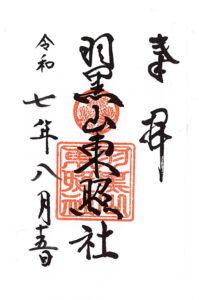 奉拝
羽黒山東照社
令和七年八月十五日